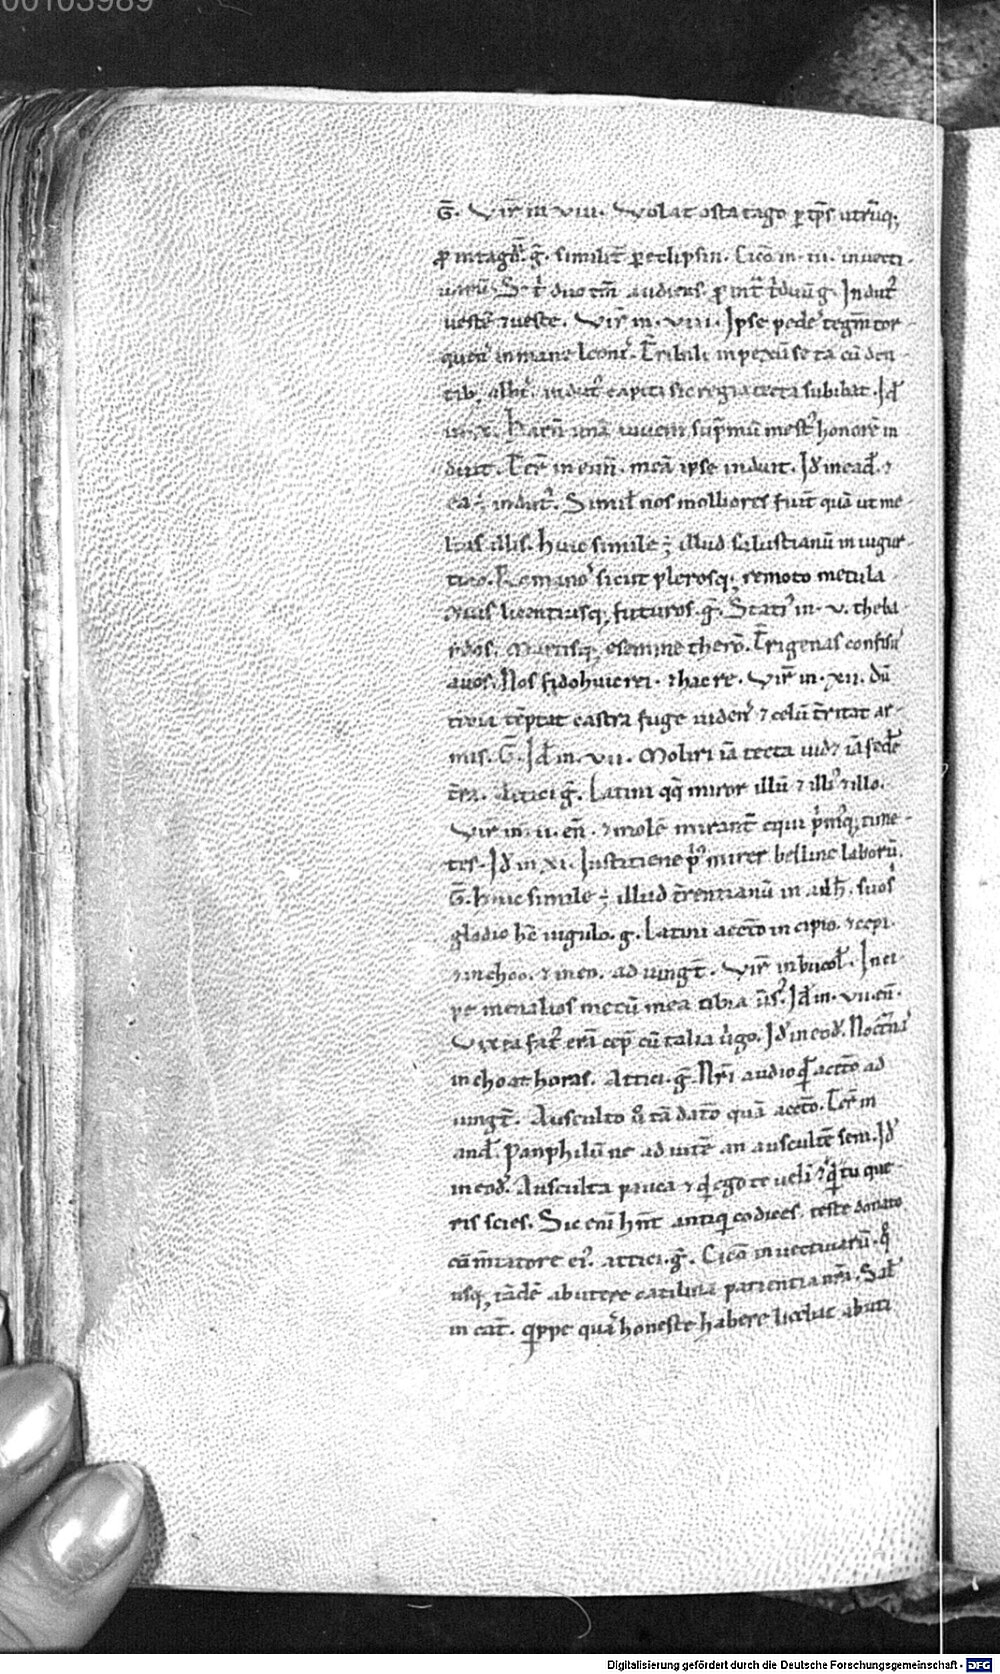 00103989
G̅. Vir̅ in viii. Volat osta tago ꝑ tp̅s utrũq;
ꝓ intag̅. g̅. similit̅ ꝑ eclipsin. Cic̅o in. iii. inuecti
duo tm̅ audiens. ꝓ Indut᷒
ueste̅ ⁊ ueste. Vir̅ in. viii. Ipse pede᷒ tegm̅ tor
quens inmane leonis. T̅ribili inpexũ seta cũ den
tib; albis. indut᷒ capiti sic regia tecta subibat. Id̅
in. x. Haru̅ una̅ iuueni sup̅mũ mest᷒ honore̅ in
duit. Ter̅ in eun̅. mea̅ ipse induit. Id̅ in ead̅. ⁊
ea ÷ indut᷒. Simul̅ nos molliores fuit̅ qua̅ ut me
illis. Huic simile ÷ illud salustianũ in iugur
tino. Romano᷒ sicut plerosq; remoto metu la
xius licentiusq; futuros. g̅. Stati᷒ in. v. theba
idos. Martisq; esemine thero̅. T̅rigenas confisu᷒
auos. Nos fido huic rei. ⁊ hac re. Vir̅ in. xii. Du̅
troia te̅ptat castra fuge uiden᷒ ⁊ celũ t̅ritat ar
mis. G̅. Id̅ in. vii. Moliri ia̅ tecta uid⁊ ia̅ sede̅
t̅ra. Attici g̅. Latini qq̅ miror illũ ⁊ illi᷒ ⁊ illo.
Vir̅ in. ii. en̅. ⁊ mole̅ mirant̅ equi time
tes. Id̅ in xi. Iustitiene p᷒ mirer belline laborũ.
G̅. huic simile ÷ illud t̅rentianũ in adh̅. suo᷒
gladio hc̅ iugulo. g. Latini accto̅ incipio. ⁊ cepi.
⁊ inchoo. ⁊ ineo. adiungt̅. Vir̅ in bucol̅. Inci
pe menalios mecũ mea tibia u̅s᷒. Id̅ in. vii. en̅.
Vix ea fat᷒ era̅ cep̅ cũ talia u̅go. Id̅ in eod̅. Noct̅na᷒
inchoat horas. Attici. g̅. Nr̅i audio accto̅ ad
iungt̅. Ausculto ta̅ dato̅ qua̅ accto̅. Ter̅ in
and̅. Panphilũ ne adiute̅ an ausculte̅ sem. Id̅
in eod̅. Ausculta pauca ⁊ qd̅ ego te ueli᷒ ⁊ qd̅ tu que
ris scies. Sic eni̅ hn̅t antiqi codices. teste donato
co̅m̅tatore ei᷒. attici. g̅. Cic̅o inuectiuarũ. q̊
usq; ta̅de̅ abutere catilina patientia nr̅a. Sal̅
in cat̅. qippe qua᷒ honeste habere licebat abuti
Digitalisierung gefördert durch die Deutsche Forschungsgemeinschaft - DFG